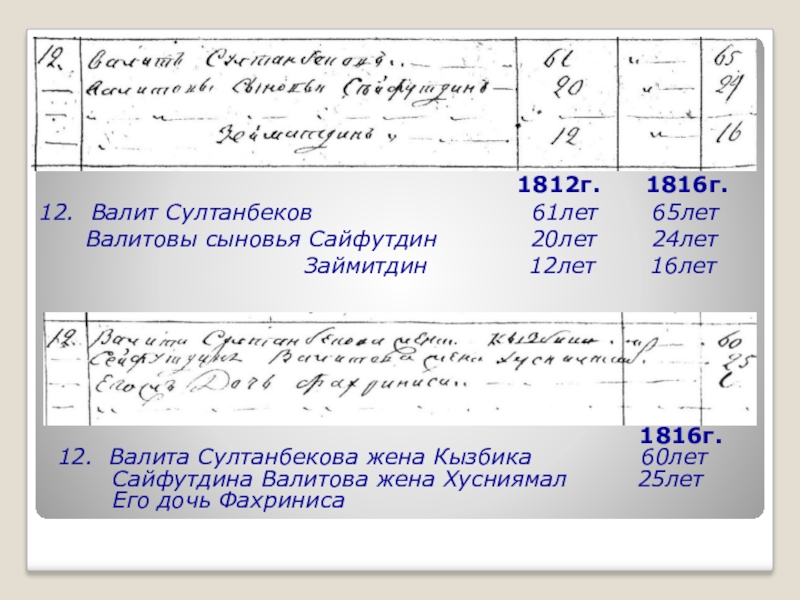 12. Валитъ Султанбековъ 61 " 65
Валитовы сыновья Сайфутдинъ 20 " 24
Зеймитдинъ 12 " 16
1812г. 1816г.
12. Валит Султанбеков 61лет 65лет
Валитовы сыновья Сайфутдин 20лет 24лет
Займитдин 12лет 16лет
12. Валита Султанбекова жена Кызбика 60
Сейфутдина Валитова жена 25
Его дочь Фахриниса
1816г.
12. Валита Султанбекова жена Кызбика 60лет
Сайфутдина Валитова жена Хусниямал 25лет
Его дочь Фахриниса